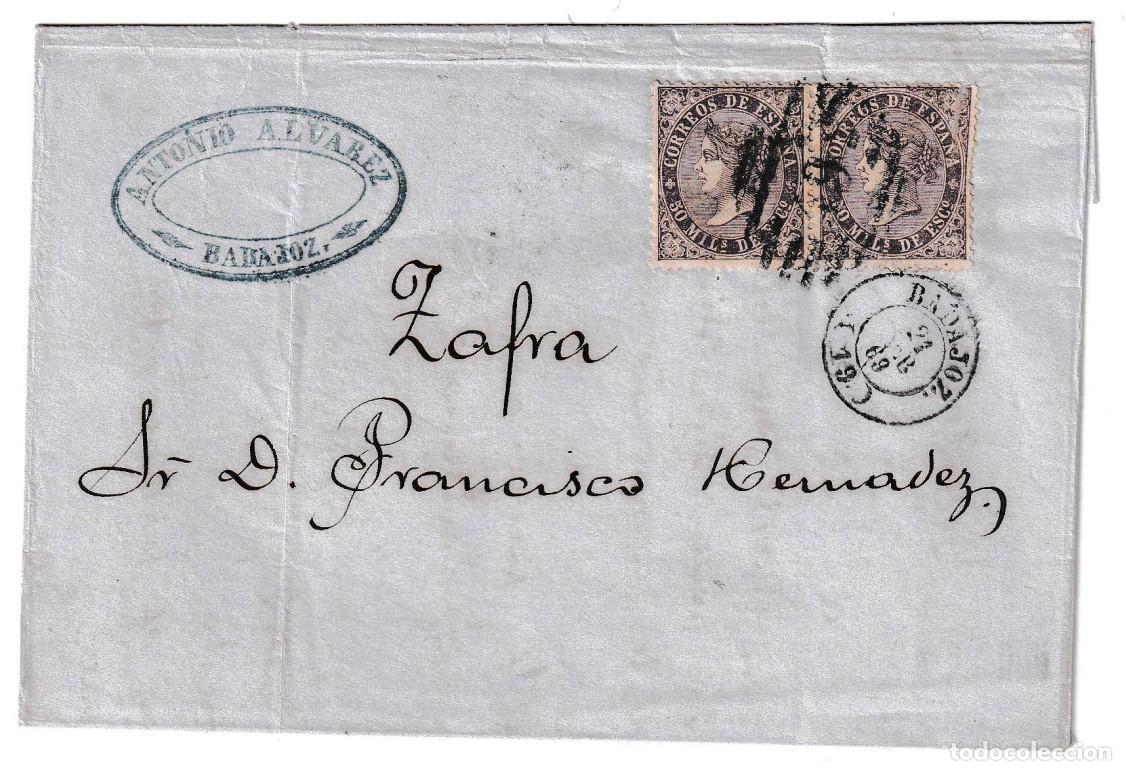 ANTONIO ALVAREZ
BADAJOZ.
CORREOS DE ESPAÑA
50 MILS. DE ESCO
CORREOS DE ESPAÑA
50 MILS. DE ESCO
BADAJOZ.
21
69
Zafra
Sr D. Francisco Hernadez
todocoleccion